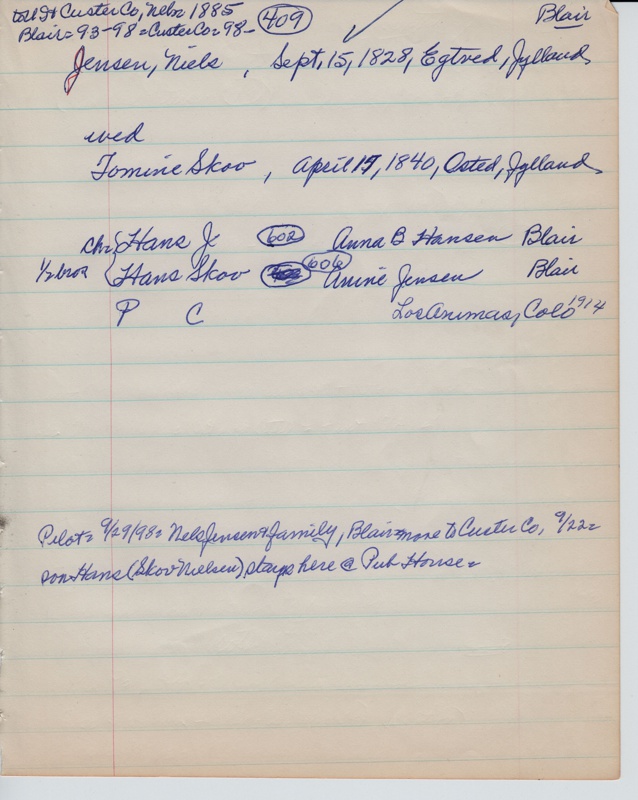 to US + Custer Co, Nebr 1885 409 Blair
Blair = 93-98 = Custer Co = 98-
Jensen, Niels, Sept, 15, 1828, Egtved, Jylland
wed
Tomine Skov, April 17, 1840, Osted, Jylland
chi Hans J 602 Anna B Hansen Blair
1/2 bros Hans Skov 606 Anine Jensen Blair
P C Los Animas, Colo 1914
Pilot = 9/29/98 = Nels Jensen + family, Blair = move to Custer Co, 9/22 =
son Hans (Skov Nielsen) stays here @ Pub House =